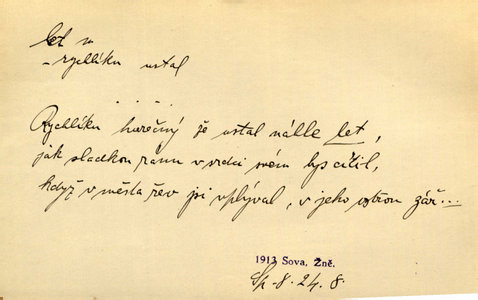 let m
– rychlíku ustal
. . . .
Rychlíku horečný že ustal náhle let,
jak sladkou ránu v srdci svém bys cítil,
když v města řev jsi vplýval, v jeho ostrou zář...
1913 Sova, Žně.
Sp. 8. 24. 8.